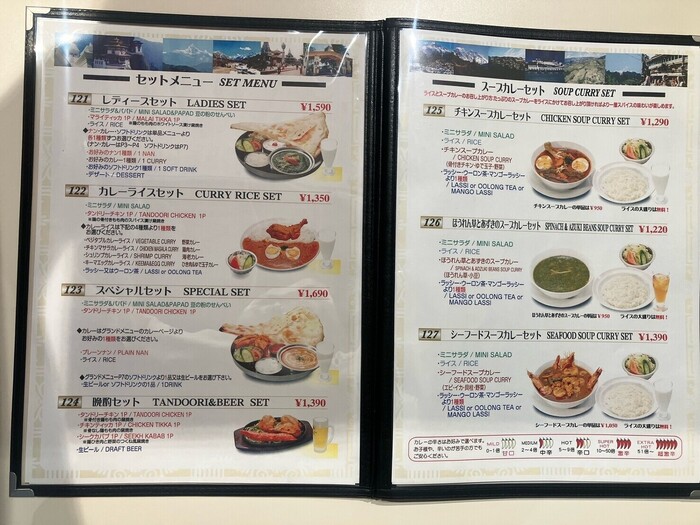 セットメニュー SET MENU
121 レディースセット LADIES SET ¥1,590
・ミニサラダ&パパド / MINI SALAD&PAPAD 豆の粉のせんべい
・マライティッカ 1P / MALAI TIKKA 1P
・ライス / RICE
◆ナン・カレー・ソフトドリンクは単品メニューより
各1種類ずつお選びください。
(ナン・カレーはP3〜P4 ソフトドリンクはP7)
・お好みのナン1種類 / 1 NAN
・お好みのカレー1種類 / 1 CURRY
・お好みのソフトドリンク1種類 / 1 SOFT DRINK
・デザート / DESSERT
122 カレーライスセット CURRY RICE SET ¥1,350
・ミニサラダ / MINI SALAD
・タンドリーチキン 1P / TANDOORI CHICKEN 1P
※鶏の骨付きもも肉のスパイス漬け焼き
◆カレーライスは下記の4種類より1種類を
お選びください。
・ベジタブルカレーライス / VEGETABLE CURRY 野菜カレー
・チキンマサラカレーライス / CHICKEN MASALA CURRY 鶏肉カレー
・シュリンプカレーライス / SHRIMP CURRY 海老カレー
・キーマエッグカレーライス / KEEMA&EGG CURRY ひき肉&ゆで玉子カレー
・ラッシー又はウーロン茶 / LASSI or OOLONG TEA
123 スペシャルセット SPECIAL SET ¥1,690
・ミニサラダ&パパド / MINI SALAD&PAPAD 豆の粉のせんべい
・タンドリーチキン 1P / TANDOORI CHICKEN 1P
◆カレーはグランドメニューのカレーページより
お好みの1種類をお選びください。
・プレーンナン / PLAIN NAN
・ライス / RICE
◆グランドメニューP7のソフトドリンクより1品又は生ビールをお選び下さい。
・生ビールor ソフトドリンクの1品 / 1DRINK
124 晩酌セット TANDOORI&BEER SET ¥1,390
・タンドリーチキン 1P / TANDOORI CHICKEN 1P
・チキンティッカ 1P / CHICKEN TIKKA 1P
・シークカバブ 1P / SEEKH KABAB 1P
・生ビール / DRAFT BEER
スープカレーセット SOUP CURRY SET
125 チキンスープカレーセット CHICKEN SOUP CURRY SET ¥1,290
・ミニサラダ / MINI SALAD
・ライス / RICE
・チキンスープカレー
/ CHICKEN SOUP CURRY
(骨付きチキン・ゆで玉子・野菜)
・ラッシー・ウーロン茶・マンゴーラッシー
より1種類
/ LASSI or OOLONG TEA or
MANGO LASSI
チキンスープカレーの単品は ¥950 ライスの大盛りは無料!
126 ほうれん草とあずきのスープカレーセット SPINACH & AZUKI BEANS SOUP CURRY SET ¥1,220
・ミニサラダ / MINI SALAD
・ライス / RICE
・ほうれん草とあずきのスープカレー
/ SPINACH & ADZUKI BEANS SOUP CURRY
(ほうれん草・小豆)
・ラッシー・ウーロン茶・マンゴーラッシー
より1種類
/ LASSI or OOLONG TEA or
MANGO LASSI
ほうれん草とあずきのスープカレーの単品は ¥950 ライスの大盛りは無料!
127 シーフードスープカレーセット SEAFOOD SOUP CURRY SET ¥1,390
・ミニサラダ / MINI SALAD
・ライス / RICE
・シーフードスープカレー
/ SEAFOOD SOUP CURRY
(エビ・イカ・貝柱・野菜)
・ラッシー・ウーロン茶・マンゴーラッシー
より1種類
/ LASSI or OOLONG TEA or
MANGO LASSI
シーフードスープカレーの単品は ¥1,050 ライスの大盛りは無料!
カレーの辛さはお好みで選べます。
お子様や、辛いのが苦手の方でも
ご安心ください。
MILD 0~1倍 甘口
MEDIUM 2~4倍 中辛
HOT 5~9倍 辛口
SUPER HOT 10~50倍 激辛
EXTRA HOT 51倍~ 超激辛